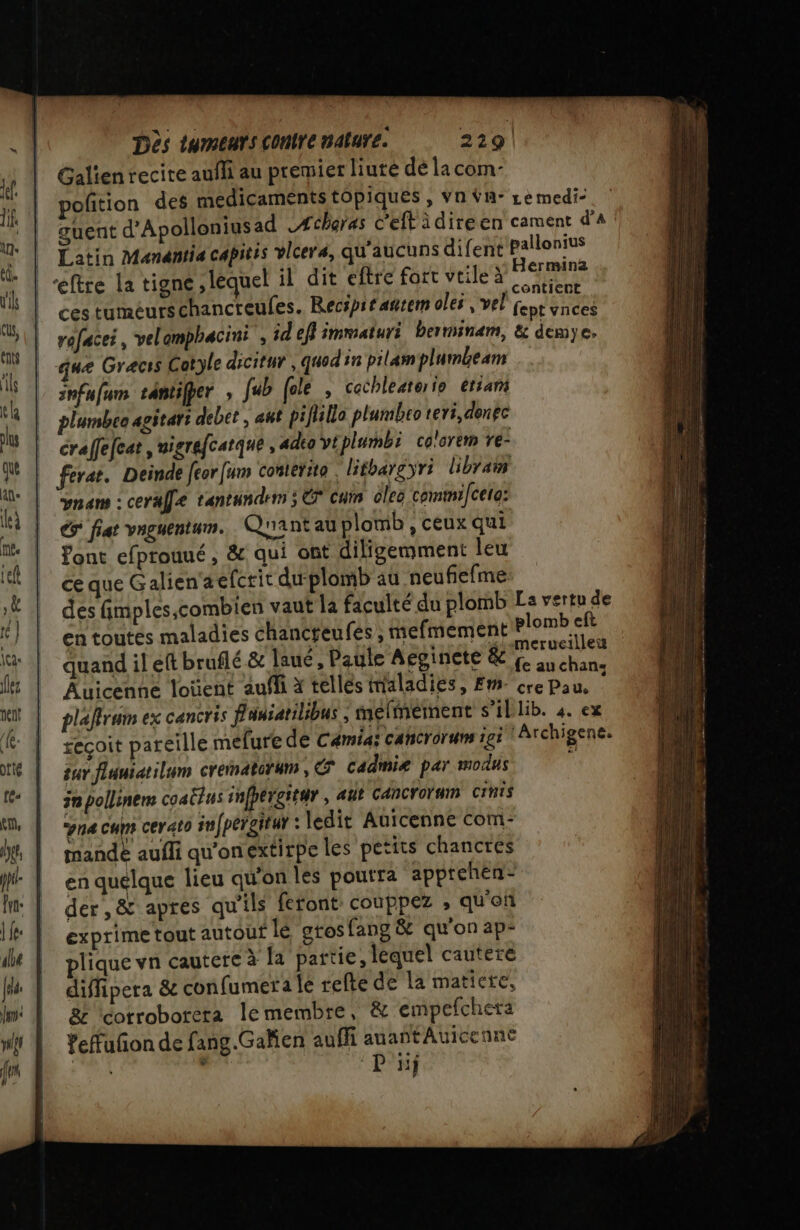 Des tumeurs contre nature. 229
Galien recite auſſi au premier liure de la com-
poſition des medicaments topiques, vn vn-
guent d'Apollonius ad Achoras c'eſt à dire en
Latin Manantia capitis vlcera, qu'aucuns diſent
eſtre la tigne, lequel il dit eſtre fort vtile à
ces tumeurs chancreuſes. Recipit autem olei, vel
roſacei, vel omphacini, id eſt immaturi herminam,
quæ Græcis Cotyle dicitur, quod in pilam plumbeam
infuſum tantiſper, ſub ſole, cochleatorio etiam
plumbeo agitari debet, aut piſtillo plumbeo teri, donec
craſſeſcat, nigreſcatque, adeo vt plumbi colorem re-
ferat. Deinde ſeorſum conterito lithargyri libram
vnam : ceruſſæ tantundem ; & cum oleo commiſceto:
& fiat vnguentum. Quant au plomb, ceux qui
l'ont eſprouué, & qui ont diligemment leu
ce que Galien a eſcrit du plomb au neufieſme
des ſimples, combien vaut la faculté du plomb
en toutes maladies chancreuſes, meſmement
quand il eſt bruſlé & laué, Paule Aeginete &
Auicenne loüent auſſi à telles maladies, Em-
plaſtrum ex cancris fluuiatilibus, meſmement s'il
reçoit pareille meſure de Camia: cancrorum igi
tur fluuiatilum crematorum, & cadmiæ par modus
in pollinem coactus inſpergitur, aut cancrorum cinis
vna cum cerato inſpergitur : ledit Auicenne com-
mande auſſi qu'on extirpe les petits chancres
en quelque lieu qu'on les pourra apprehen-
der, & apres qu'ils ſeront couppez, qu'on
exprime tout autour le gros ſang & qu'on ap-
plique vn cautere à la partie, lequel cautere
diſſipera & conſumera le reſte de la matiere,
& corroborera le membre, & empeſchera
l'effuſion de ſang. Galien auſſi auant Auicenne
P iij
remedi-
cament d'A
pallonius
Hermina
contient
ſept vnces
& demye.
La vertu de
plomb eſt
merueilleu
ſe au chan-
cre Pau.
lib. 4. ex
Archigene.